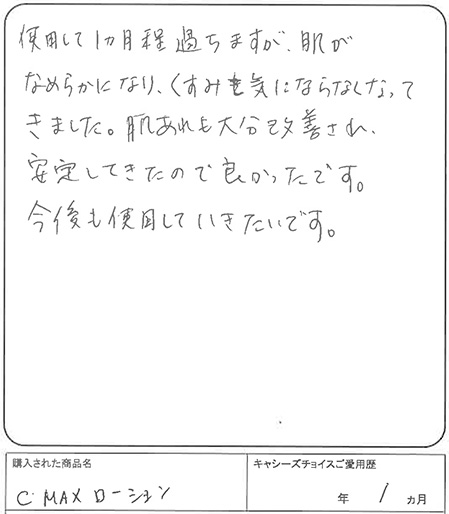 使用して1カ月程過ちますが、肌が
なめらかになり、くすみも気にならなくなって
きました。肌あれも大分改善され、
安定してきたので良かったです。
今後も使用していきたいです。
購入された商品名
キャシーズチョイスご愛用歴
C MAX ローション
年 1 ヵ月